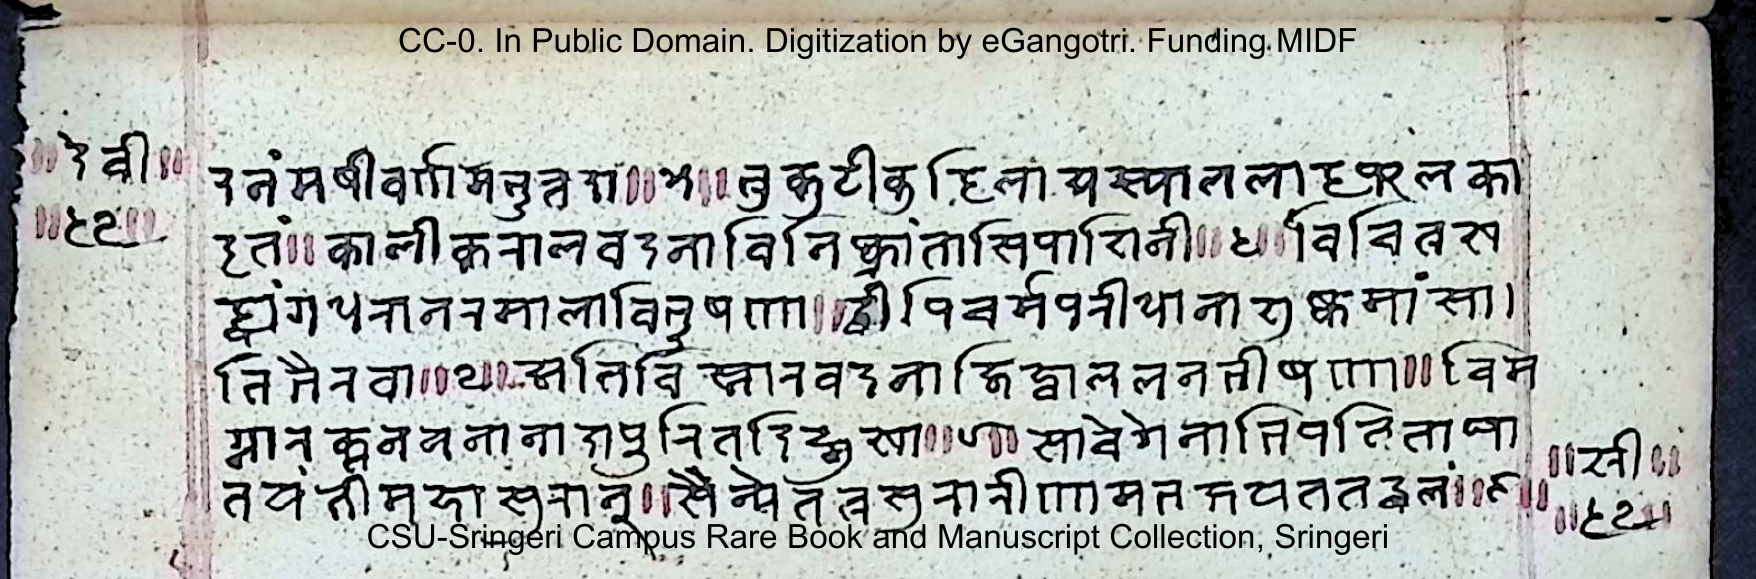 CC-0. In Public Domain. Digitization by eGangotri. Funding.MIDF
॥देवी॥
दनं मषीवर्णमभूत्तदा॥५॥भ्रुकुटीकुटिलात्तस्याललाटफलका
द्द्रुतं॥कालीकरालवदनाविनिष्क्रांतासिपाशिनी॥६॥विचित्रख
ट्वांगधरानरमालाविभूषणा॥द्वीपिचर्मपरीधानाशुष्कमांसा
तिभैरवा॥७॥अतिविस्तारवदनाजिह्वाललनभीषणा॥निम
ग्नारक्तनयनानादापूरितदिङ्मुखा॥८॥सावेगेनाभिपतिताघा
तयंतीमहासुरान्॥सैन्येतत्रसुरारीणामभक्षयततद्बलं॥९॥
CSU-Sringeri Campus Rare Book and Manuscript Collection, Sringeri